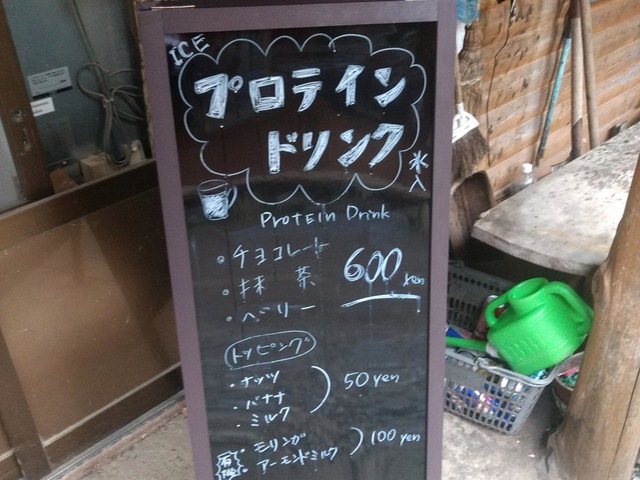 ICE
プロテイン
ドリンク
氷入
Protein Drink
・チョコレート
・抹茶
・ベリー
600 yen
トッピング
・ナッツ
・バナナ
・ミルク
50 yen
有機
モリンガ
アーモンドミルク
100 yen